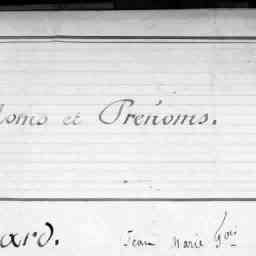 Noms et Prénoms.
ard. Jean Marie Fois